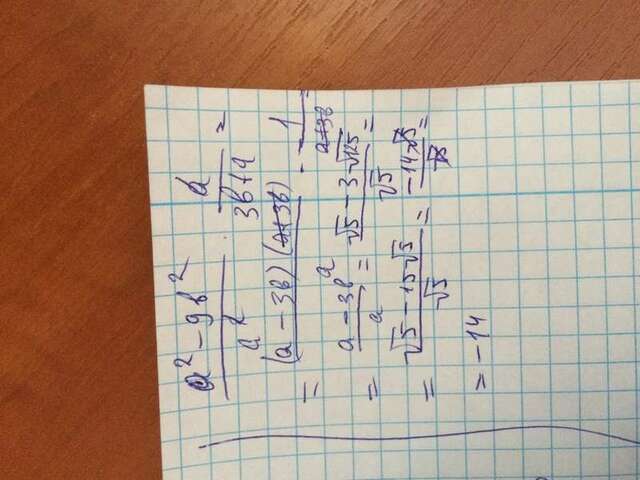 a² - 9b² / a² · a / 3b + a =
= (a - 3b)(a+3b) / a · 1 / a+3b =
= a - 3b / a = √5 - 3√125 / √5 =
= √5 - 15√5 / √5 = -14√5 / √5 =
= -14